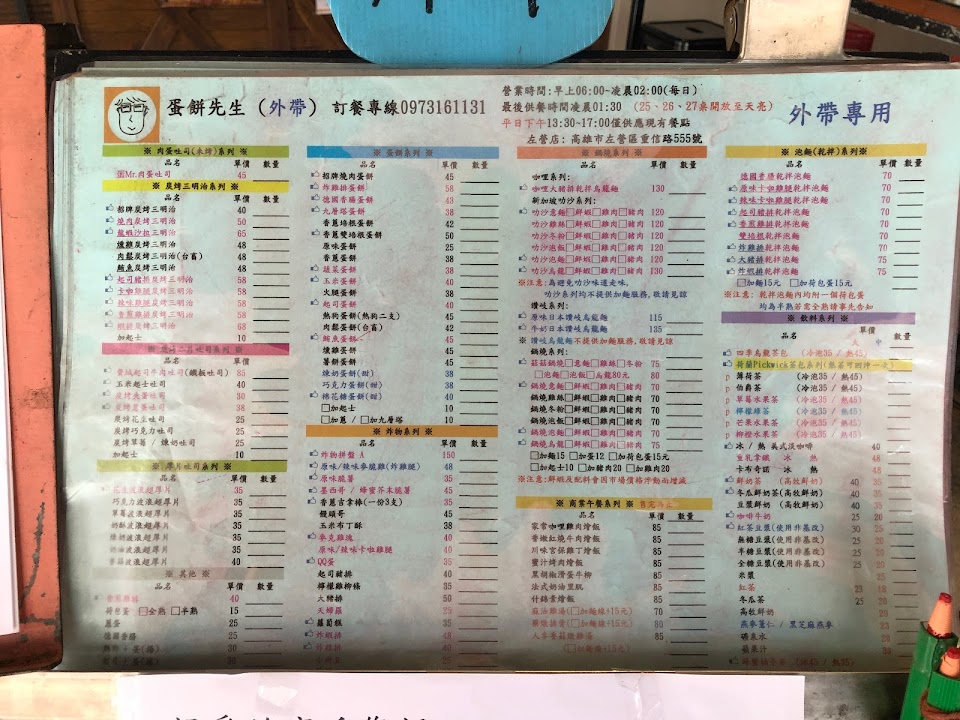 蛋餅先生（外帶） 訂餐專線0973161131
營業時間:早上06:00~凌晨02:00(每日)
最後供餐時間凌晨01:30 (25、26、27桌開放至天亮)
平日下午13:30-17:00僅供應現有餐點
左營店: 高雄市左營區重信路555號
外帶專用
※ 肉蛋吐司(未烤)系列 ※
品名 單價 數量
蛋Mr.肉蛋吐司 45
※ 炭烤三明治系列 ※
品名 單價 數量
招牌炭烤三明治 40
燒肉炭烤三明治 50
龍蝦沙拉三明治 50
燻雞炭烤三明治 48
肉鬆炭烤三明治(台畜) 48
鮪魚炭烤三明治 48
起司豬排炭烤三明治 58
卡啦雞腿炭烤三明治 58
辣味雞腿炭烤三明治 58
香蔥雞排炭烤三明治 58
炭烤三明治 68
加起士 10
吐司系列 ※
品名 單價
牛肉吐司(鐵板吐司) 50
玉米起士吐司 40
吐司 30
吐司 30
炭烤花生吐司 25
炭烤巧克力吐司 25
炭烤草莓 / 煉奶吐司 25
加起士 10
※ 厚片吐司系列 ※
品名 單價 數量
花生波浪超厚片 35
巧克力波浪超厚片 35
草莓波浪超厚片 35
奶酥波浪超厚片 35
煉奶波浪超厚片 35
奶油波浪超厚片 35
香蒜波浪超厚片 40
※ 其他 ※
品名 單價 數量
40
荷包蛋 □全熟 □半熟 15
蔥蛋 25
德國香腸 25
※ 蛋餅系列 ※
品名 單價 數量
招牌燒肉蛋餅 45
炸雞排蛋餅 58
德國香腸蛋餅 43
九層塔蛋餅 38
香蔥培根蛋餅 42
香蔥雙培根蛋餅 50
原味蛋餅 25
香蔥蛋餅 30
蔬菜蛋餅 38
玉米蛋餅 40
火腿蛋餅 38
起司蛋餅 40
熱狗蛋餅(熱狗二支) 45
肉鬆蛋餅(台畜) 42
鮪魚蛋餅 45
燻雞蛋餅 45
薯餅蛋餅 45
煉奶蛋餅(甜) 38
巧克力蛋餅(甜) 38
棉花糖蛋餅(甜) 40
□加起士 10
□加蔥 / □加九層塔 10
※ 炸物系列 ※
品名 單價 數量
炸物拼盤 A 150
原味/辣味拳脆雞(炸雞腿) 48
原味脆薯 35
墨西哥 / 蜂蜜芥末脆薯 45
香蔥貢拿棒(一份3支) 35
饅頭哥 35
玉米布丁酥 38
麥克雞塊 40
原味/辣味卡啦雞腿 40
QQ蛋 35
起司豬排 40
檸檬雞柳條 35
大豬排 50
天婦羅 25
蘿蔔糕 35
炸蝦排 40
25
※ 鍋燒系列 ※
品名 單價 數量
咖哩系列:
咖哩大豬排乾拌烏龍麵 130
新加坡叻沙系列:
叻沙意麵□鮮蝦□雞肉□豬肉 120
叻沙雞絲□鮮蝦□雞肉□豬肉 120
叻沙冬粉□鮮蝦□雞肉□豬肉 120
叻沙泡麵□鮮蝦□雞肉□豬肉 120
叻沙烏龍□鮮蝦□雞肉□豬肉 130
※注意: 為避免叻沙味道走味,
叻沙系列均不提供加麵服務,敬請見諒
讚岐系列:
原味日本讚岐烏龍麵 115
牛奶日本讚岐烏龍麵 135
※ 讚岐烏龍麵不提供加麵服務,敬請見諒
鍋燒系列:
菇菇鍋燒□意麵□雞絲□冬粉 75
□泡麵□泡飯□烏龍80元 80
鍋燒意麵□鮮蝦□雞肉□豬肉 70
鍋燒雞絲□鮮蝦□雞肉□豬肉 70
鍋燒冬粉□鮮蝦□雞肉□豬肉 70
鍋燒泡飯□鮮蝦□雞肉□豬肉 70
鍋燒泡麵□鮮蝦□雞肉□豬肉 70
鍋燒烏龍□鮮蝦□雞肉□豬肉 75
□加麵15 □加蛋12 □加荷包蛋15元
□加起士10 □加豬肉20 □加雞肉20
※注意:鮮蝦及配料會因市場價格浮動而增減
※ 商業午餐系列 ※ 售完為止
品名 單價 數量
家常咖哩雞肉燴飯 85
香嫩紅燒牛肉燴飯 85
川味宮保雞丁燴飯 85
蜜汁烤肉燴飯 85
黑胡椒滑蛋牛柳 85
法式奶油里肌 85
什錦素燴飯 85
麻油雞湯(□加麵線+15元) 70
藥燉排骨(□加麵線+15元) 80
人參香菇燉雞湯 85
(□加麵線+15元)
※ 泡麵(乾拌)系列 ※
品名 單價 數量
德國香腸乾拌泡麵 70
原味卡啦雞腿乾拌泡麵 70
辣味卡啦雞腿乾拌泡麵 70
起司豬排乾拌泡麵 70
香蔥雞排乾拌泡麵 70
雙培根乾拌泡麵 70
炸雞排乾拌泡麵 70
大豬排乾拌泡麵 75
炸蝦排乾拌泡麵 75
□加麵15元 □加荷包蛋15元
※注意: 乾拌泡麵內均附一個荷包蛋
均為半熟若需全熟請事先告知
※ 飲料系列 ※
品名 單價 數量
大 中
四季烏龍茶包 (冷泡35 / 熱45)
荷蘭Pickwick茶包系列(熱茶可回沖一次)
p 薄荷茶 (冷泡35 / 熱45)
p 伯爵茶 (冷泡35 / 熱45)
p 草莓水果茶 (冷泡35 / 熱45)
p 檸檬綠茶 (冷泡35 / 熱45)
p 芒果水果茶 (冷泡35 / 熱45)
p 柳橙水果茶 (冷泡35 / 熱45)
冰 / 熱 美式淡咖啡 40
重乳拿鐵 冰 熱 48
卡布奇諾 冰 熱 48
鮮奶茶 (高牧鮮奶) 40 30
冬瓜鮮奶茶(高牧鮮奶) 40 30
豆漿鮮奶 (高牧鮮奶) 40 30
咖啡牛奶 25 20
紅茶豆漿(使用非基改) 30 25
無糖豆漿(使用非基改) 25 20
半糖豆漿(使用非基改) 25 20
全糖豆漿(使用非基改) 25 20
米漿 25 20
紅茶 23 18
冬瓜茶 25 20
高牧鮮奶 30
燕麥薏仁 / 黑芝麻燕麥 23
礦泉水 20
蘋果汁 20
(冰45 / 熱35)